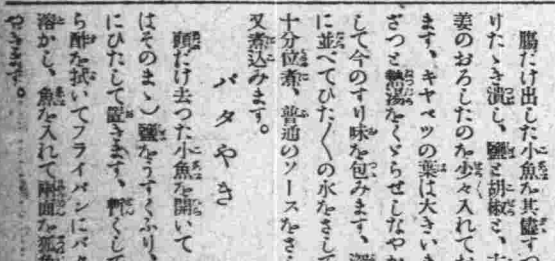 腸だけ出した小魚を其儘すつ
りたゝき潰し、鹽と胡椒と、
姜のおろしたのを少々入れてお
ます、キヤベツの葉は大きいま
ざつと熱湯をくゞらせしなやか
して今のすり味を包みます、深
に並べてひた〳〵の水をさして
十分位煮、普通のソースをさら
又煮込みます。
バタやき
頭だけ去つた小魚を開いて
はそのまゝ）鹽をうすくふり、
にひたして置きます、暫くして
ら酢を拭いてフライパンにバタ
溶かし、魚を入れて兩面を狐色
やきます。